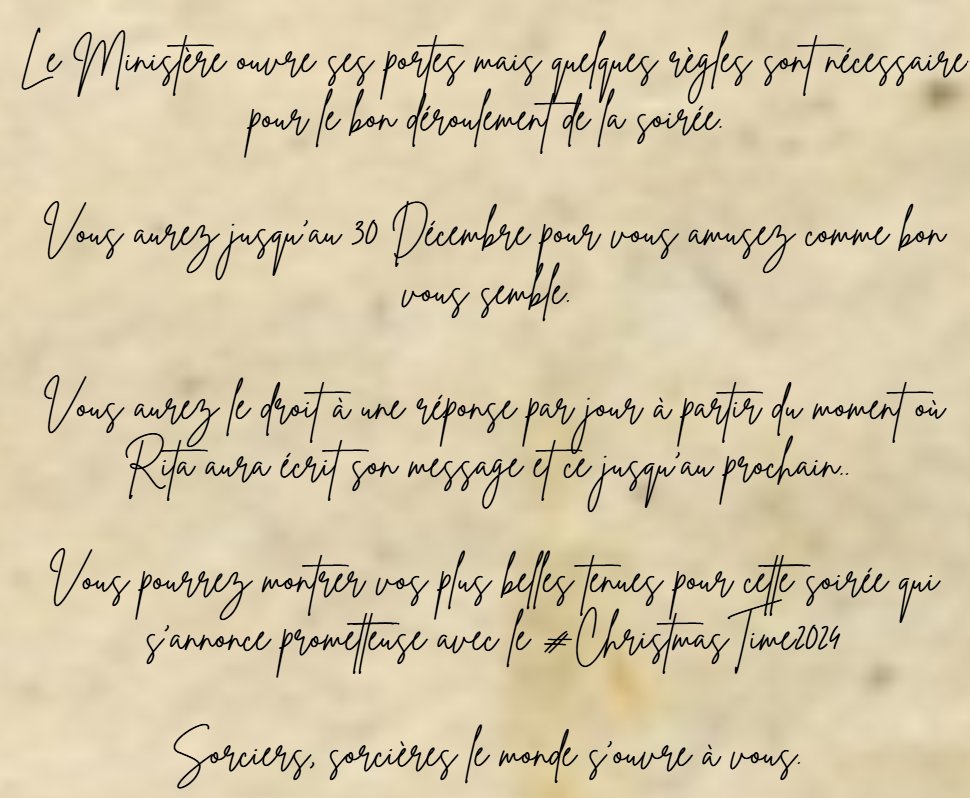 Le Ministère ouvre ses portes mais quelques règles sont nécessaire
pour le bon déroulement de la soirée.
Vous aurez jusqu'au 30 Décembre pour vous amusez comme bon
vous semble.
Vous aurez le droit à une réponse par jour à partir du moment où
Rita aura écrit son message et ce jusqu'au prochain..
Vous pourrez montrer vos plus belles tenues pour cette soirée qui
s'annonce prometteuse avec le #ChristmasTime2024
Sorciers, sorcières le monde s'ouvre à vous.